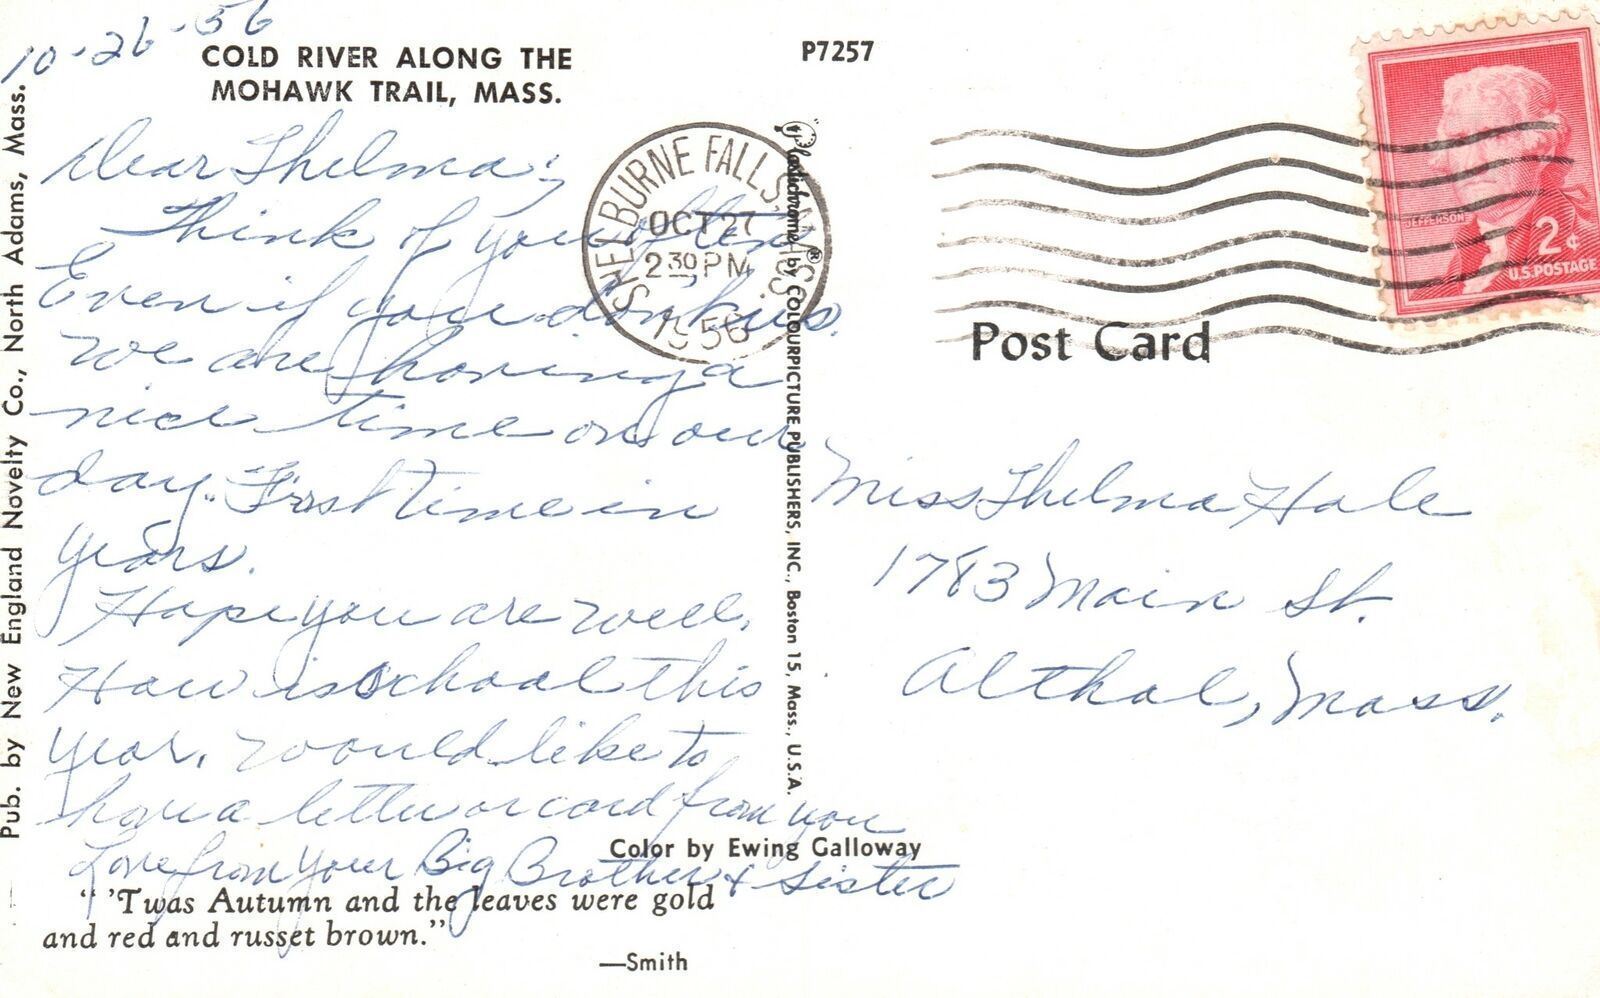 10-26-56
COLD RIVER ALONG THE
MOHAWK TRAIL, MASS.
P7257
Dear Thelma;
Think of you often
Even if you don't us.
We are having a
nice time on our
day. First time in
years.
Hope you are well.
How is school this
year. Would like to
have a letter or card from you
Love from your Big Brother & Sister
Color by Ewing Galloway
" 'Twas Autumn and the leaves were gold
and red and russet brown."
—Smith
Pub. by New England Novelty Co., North Adams, Mass.
SHELBURNE FALLS, MASS.
OCT 27
2 30 PM
1956
Plastichrome® by COLOURPICTURE PUBLISHERS, INC., Boston 15, Mass., U.S.A.
JEFFERSON
2¢
U.S. POSTAGE
Post Card
Miss Thelma Hale
1783 Main St.
Althol, Mass.